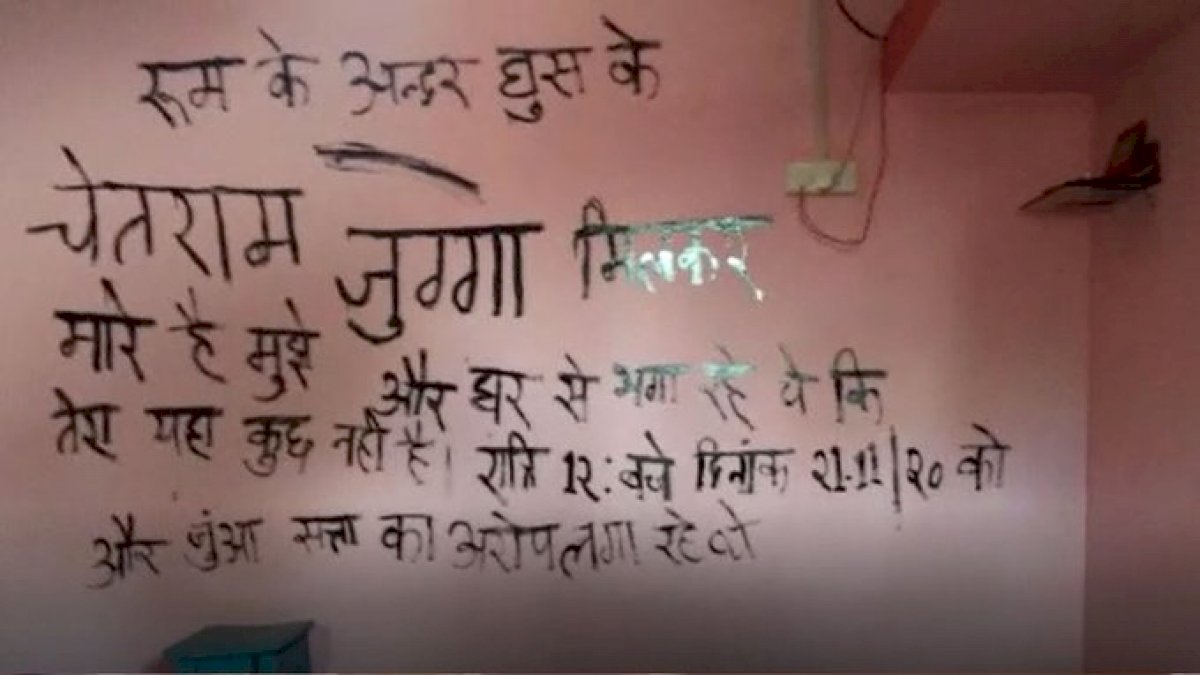 रूम के अन्दर घुस के
चेतराम जुग्गा मिलकर
मारे है मुझे
और घर से भगा रहे थे कि
तेरा यहा कुछ नहीं है। रात्रि 12: बजे दिनांक 21.11/20 को
और जुंआ सत्ता का अरोप लगा रहे थे